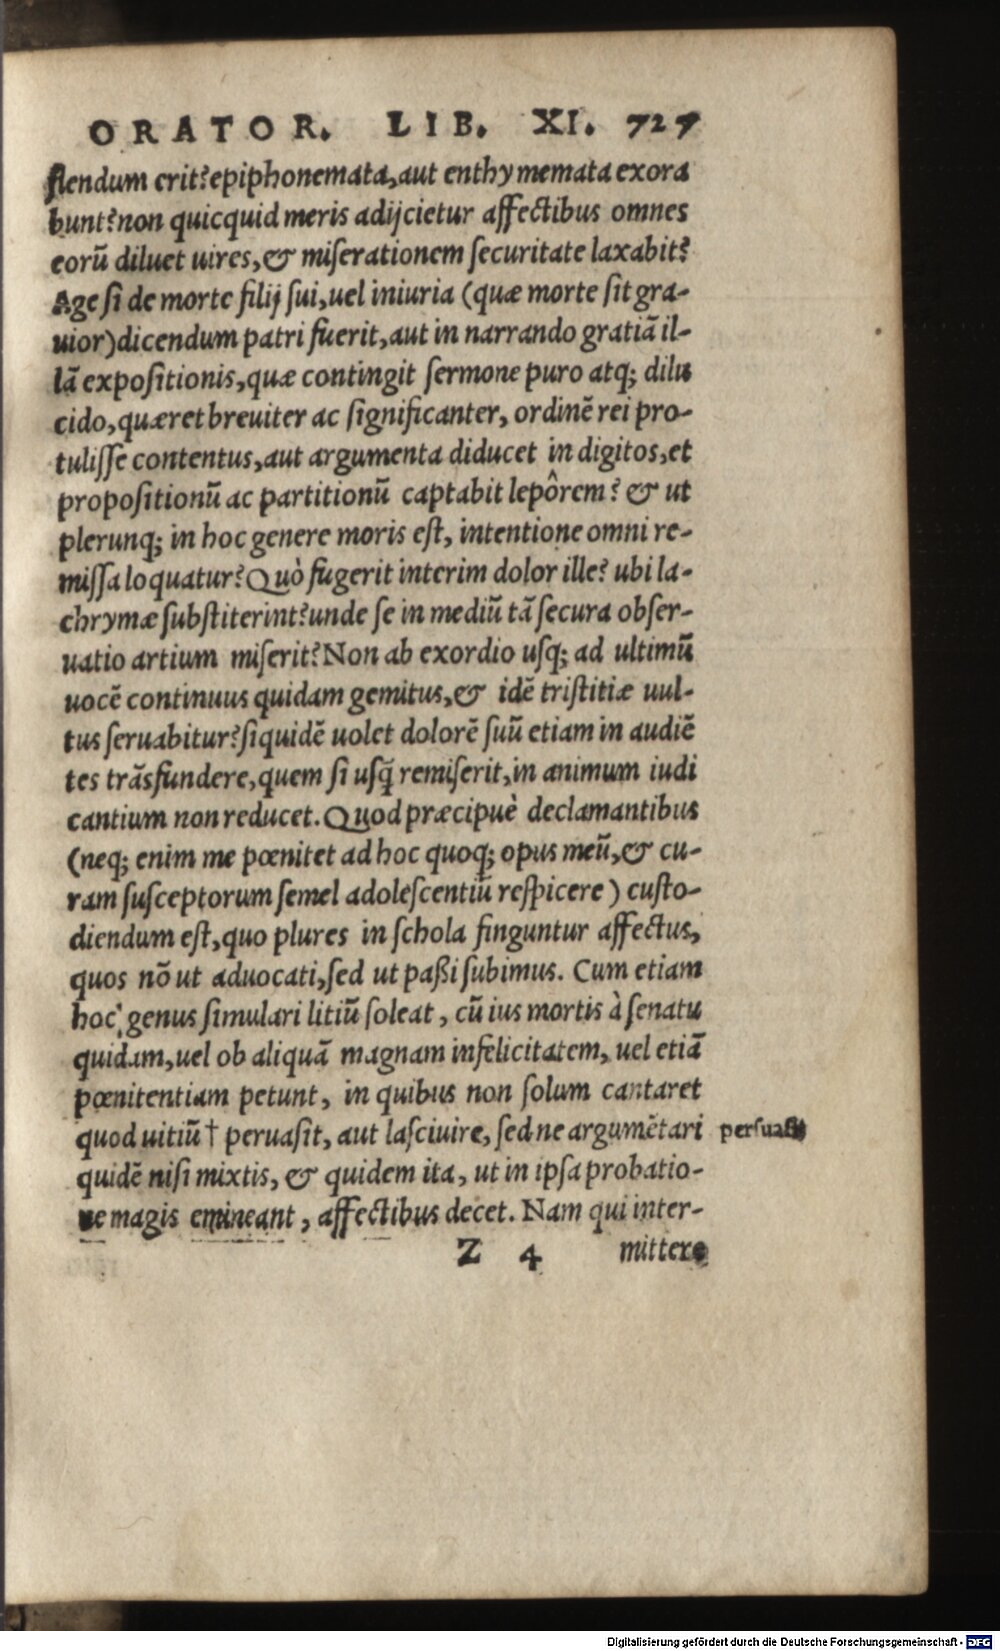 ORATOR. LIB. XI. 727
flendum erit? epiphonemata, aut enthymemata exora
bunt? non quicquid meris adijcietur affectibus omnes
eorū diluet uires, & miserationem securitate laxabit?
Age si de morte filij sui, uel iniuria (quæ morte sit gra-
uior) dicendum patri fuerit, aut in narrando gratiā il-
lā expositionis, quæ contingit sermone puro atq; dilu
cido, quæret breuiter ac significanter, ordinē rei pro-
tulisse contentus, aut argumenta diducet in digitos, et
propositionū ac partitionū captabit lepôrem? & ut
plerunq; in hoc genere moris est, intentione omni re-
missa loquatur? Quò fugerit interim dolor ille? ubi la-
chrymæ substiterint? unde se in mediū tā secura obser-
uatio artium miserit? Non ab exordio usq; ad ultimū
uocē continuus quidam gemitus, & idē tristitiæ uul-
tus seruabitur? siquidē uolet dolorē suū etiam in audiē
tes trāsfundere, quem si usq̃ remiserit, in animum iudi
cantium non reducet. Quod præcipuè declamantibus
(neq; enim me pœnitet ad hoc quoq; opus meū, & cu-
ram susceptorum semel adolescentiū respicere) custo-
diendum est, quo plures in schola finguntur affectus,
quos nō ut aduocati, sed ut paßi subimus. Cum etiam
hoc genus simulari litiū soleat, cū ius mortis à senatu
quidam, uel ob aliquā magnam infelicitatem, uel etiā
pœnitentiam petunt, in quibus non solum cantaret
quod uitiū † peruasit, aut lasciuire, sed ne argumētari persuasit
quidē nisi mixtis, & quidem ita, ut in ipsa probatio-
ne magis emineant, affectibus decet. Nam qui inter-
Z 4 mittere
Digitalisierung gefördert durch die Deutsche Forschungsgemeinschaft - DFG